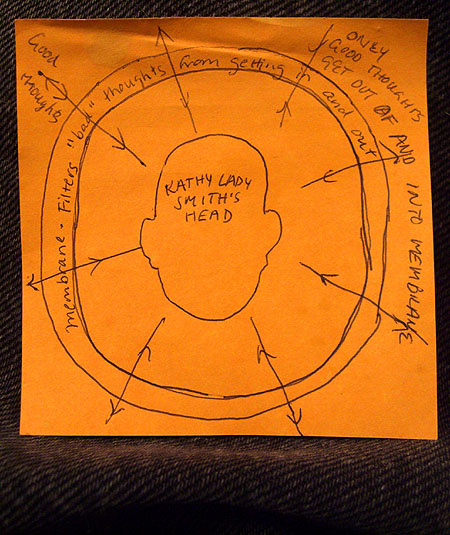 Good
thoughts
Membrane - Filters "bad" thoughts from getting in and out
ONLY
GOOD THOUGHTS
GET OUT OF AND
INTO MEMBRANE
KATHY LADY
SMITH'S
HEAD